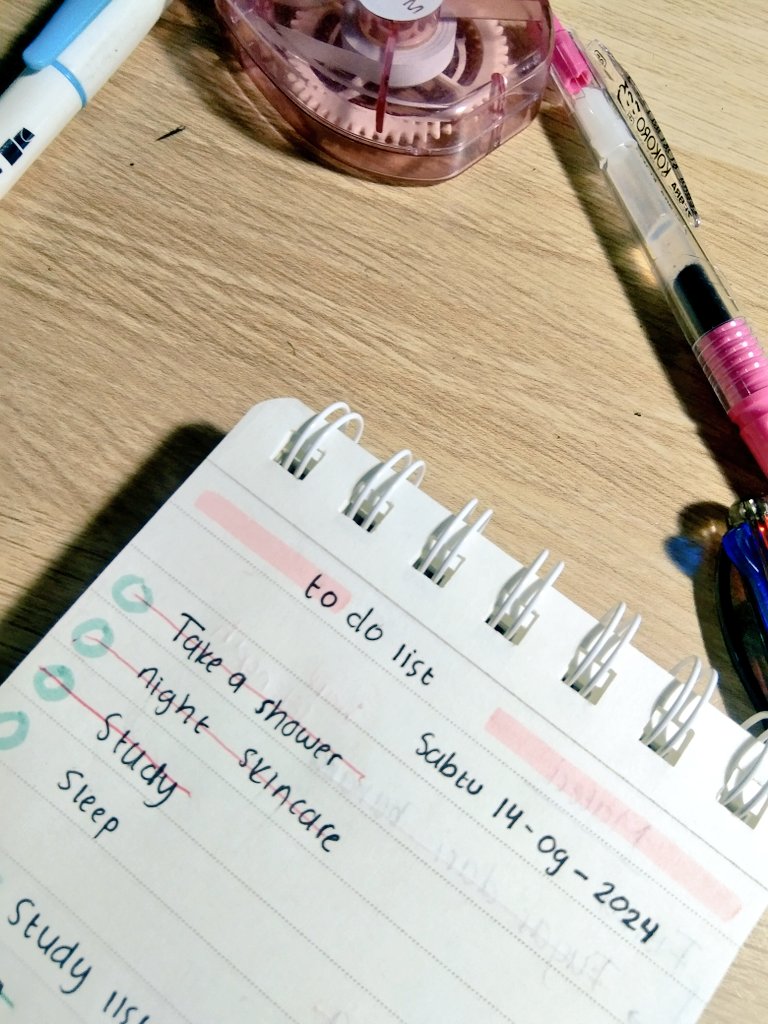 KOKORO
to do list
Sabtu 14-09-2024
Take a shower
night skincare
Study
Sleep
Study list